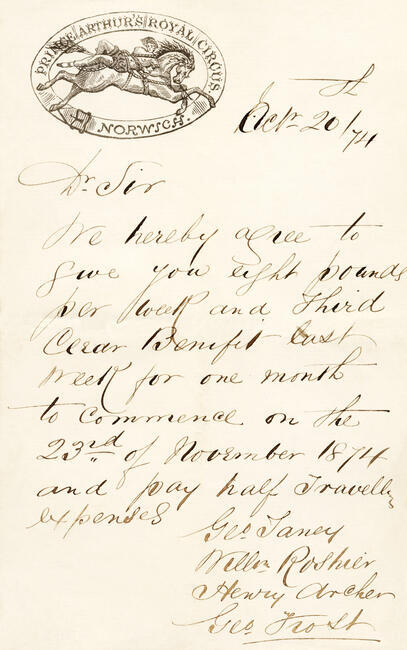 PRINCE ARTHUR'S ROYAL CIRCUS.
NORWICH.
Octr 20th/74
Dr Sir
We hereby agree to
give you eight pounds
per week and Third
Cear Benifit last
week for one month
to commence on the
23rd of November 1874
and pay half Travelling
expenses
Geo Taney
Willm Roshier
Henry Archer
Geo Frost